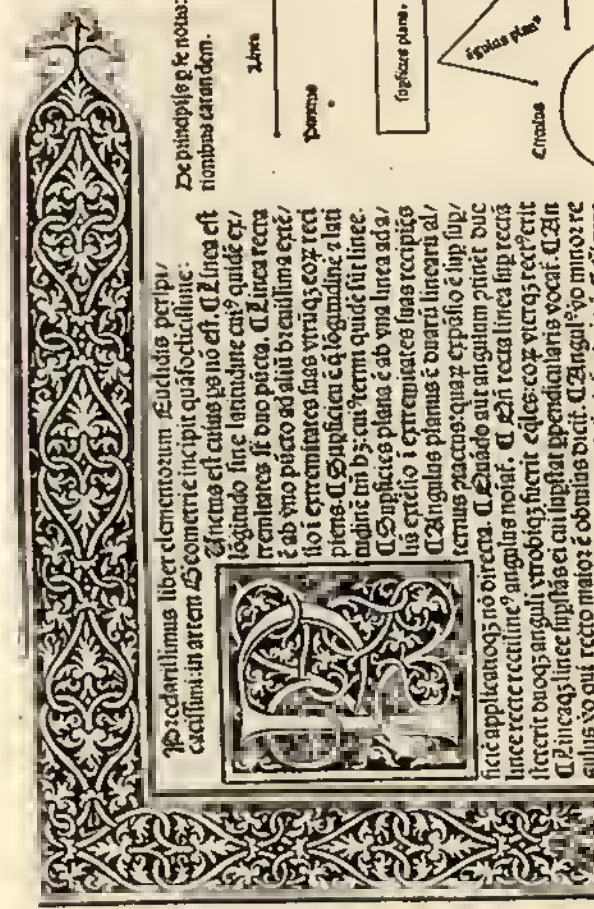 Preclarissimus liber elementorum Euclidis perspi/
cacissimi: in artem Geometrie incipit quãfoelicissime:
Punctus est cuius ps nõ est. ¶ Linea est
lõgitudo sine latitudine cui⁹ quidẽ ex/
tremitates sũt duo pũcta. ¶ Linea recta
ẽ ab vno pũcto ad aliũ breuissima extẽ/
sio ĩ extremitates suas vtrũqꝫ eoꝝ reci
piens. ¶ Supficies ẽ q̃ lõgitudinẽ ⁊ lati
tudinẽ tm̃ hꝫ: cui⁹ termi quidẽ sũt linee.
¶ Supficies plana ẽ ab vna linea ad a/
liã extẽsio ĩ extremitates suas recipiẽs
¶ Angulus planus ẽ duarũ linearũ al/
ternus ꝯtactus: quaꝝ expãsio ẽ sup sup/
ficiẽ applicatioqꝫ nõ directa. ¶ Quãdo aut angulum ꝯtinẽt due
linee recte rectiline⁹ angulus noiat. ¶ Qñ recta linea sup rectã
steterit duoqꝫ anguli vtrobiqꝫ fuerit eq̃les: eoꝝ vterqꝫ rect⁹ erit
¶ Lineaqꝫ linee supstãs ei cui supstat ppendicularis vocat. ¶ An
gulus vo qui recto maior ẽ obtusus dicit. ¶ Angul⁹ vo minor re
De principijs p se notis:
rionibus earundem.
Linea
Punctus
supficies plana.
Ãgulus plan⁹
Circulus